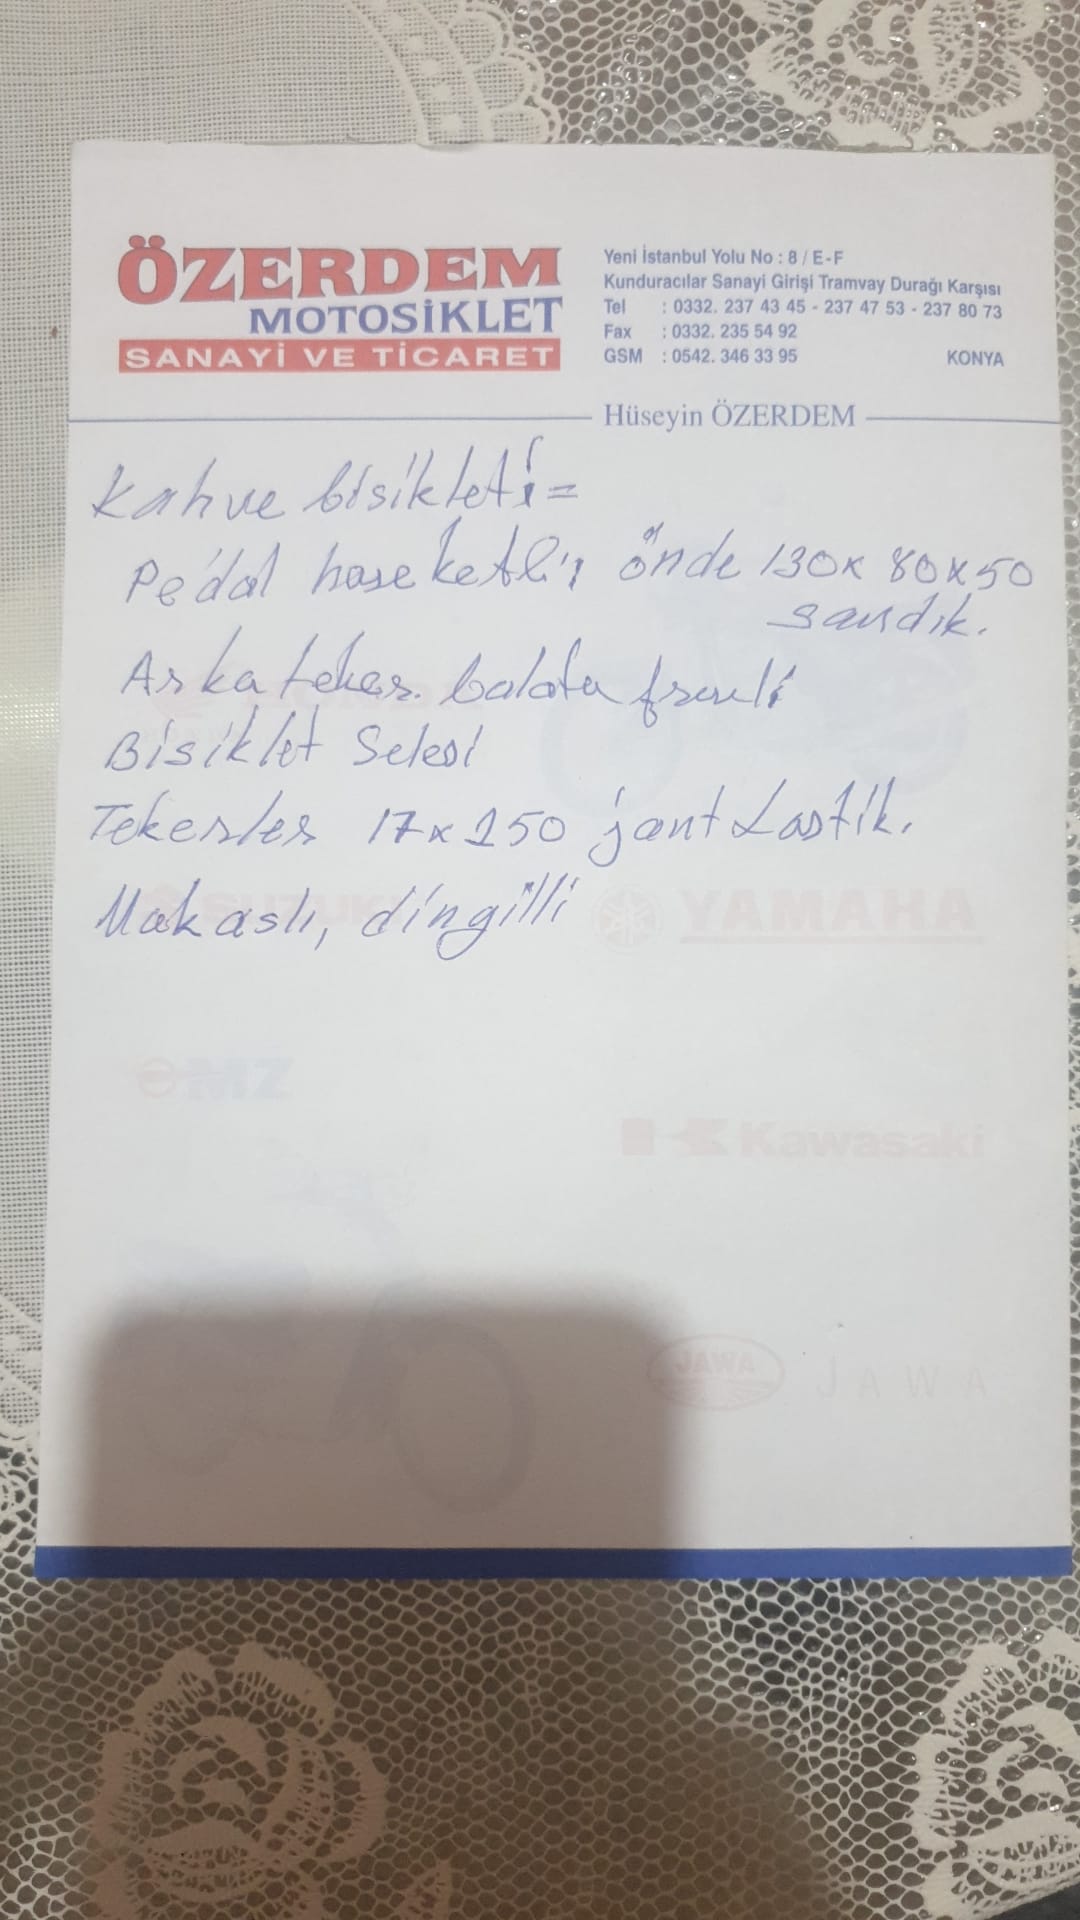 ÖZERDEM
MOTOSİKLET
SANAYİ VE TİCARET
Yeni İstanbul Yolu No : 8 / E-F
Kunduracılar Sanayi Girişi Tramvay Durağı Karşısı
Tel : 0332. 237 43 45 - 237 47 53 - 237 80 73
Fax : 0332. 235 54 92
GSM : 0542. 346 33 95 KONYA
Hüseyin ÖZERDEM
Kahve bisikleti =
Pedal hareketli, önde 130x 80x50
sandık.
Arka teker. balata frenli
Bisiklet Selesi
Tekerler 17x250 jant Lastik.
Makaslı, dingilli
SUZUKI
YAMAHA
MZ
Kawasaki
JAWA JAWA